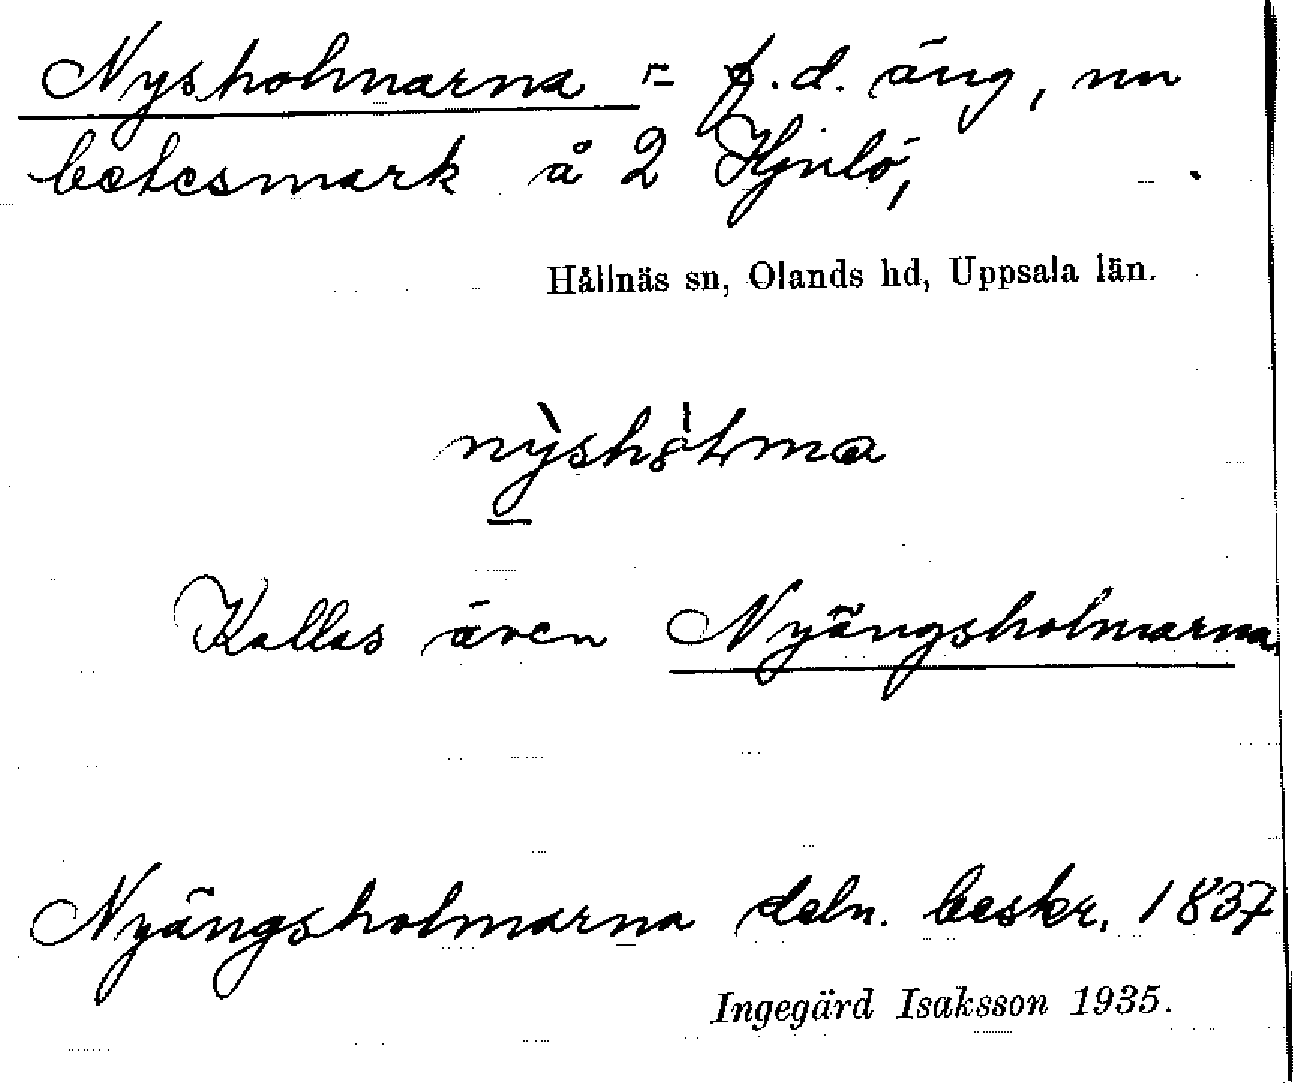 Nysholmarna = f.d. äng, nu
betesmark å 2 Hjälö,
Hållnäs sn, Olands hd, Uppsala län.
nỳshòLma
Kallas även Nyängsholmarna.
Nyängsholmarna deln. beskr. 1837
Ingegärd Isaksson 1935.